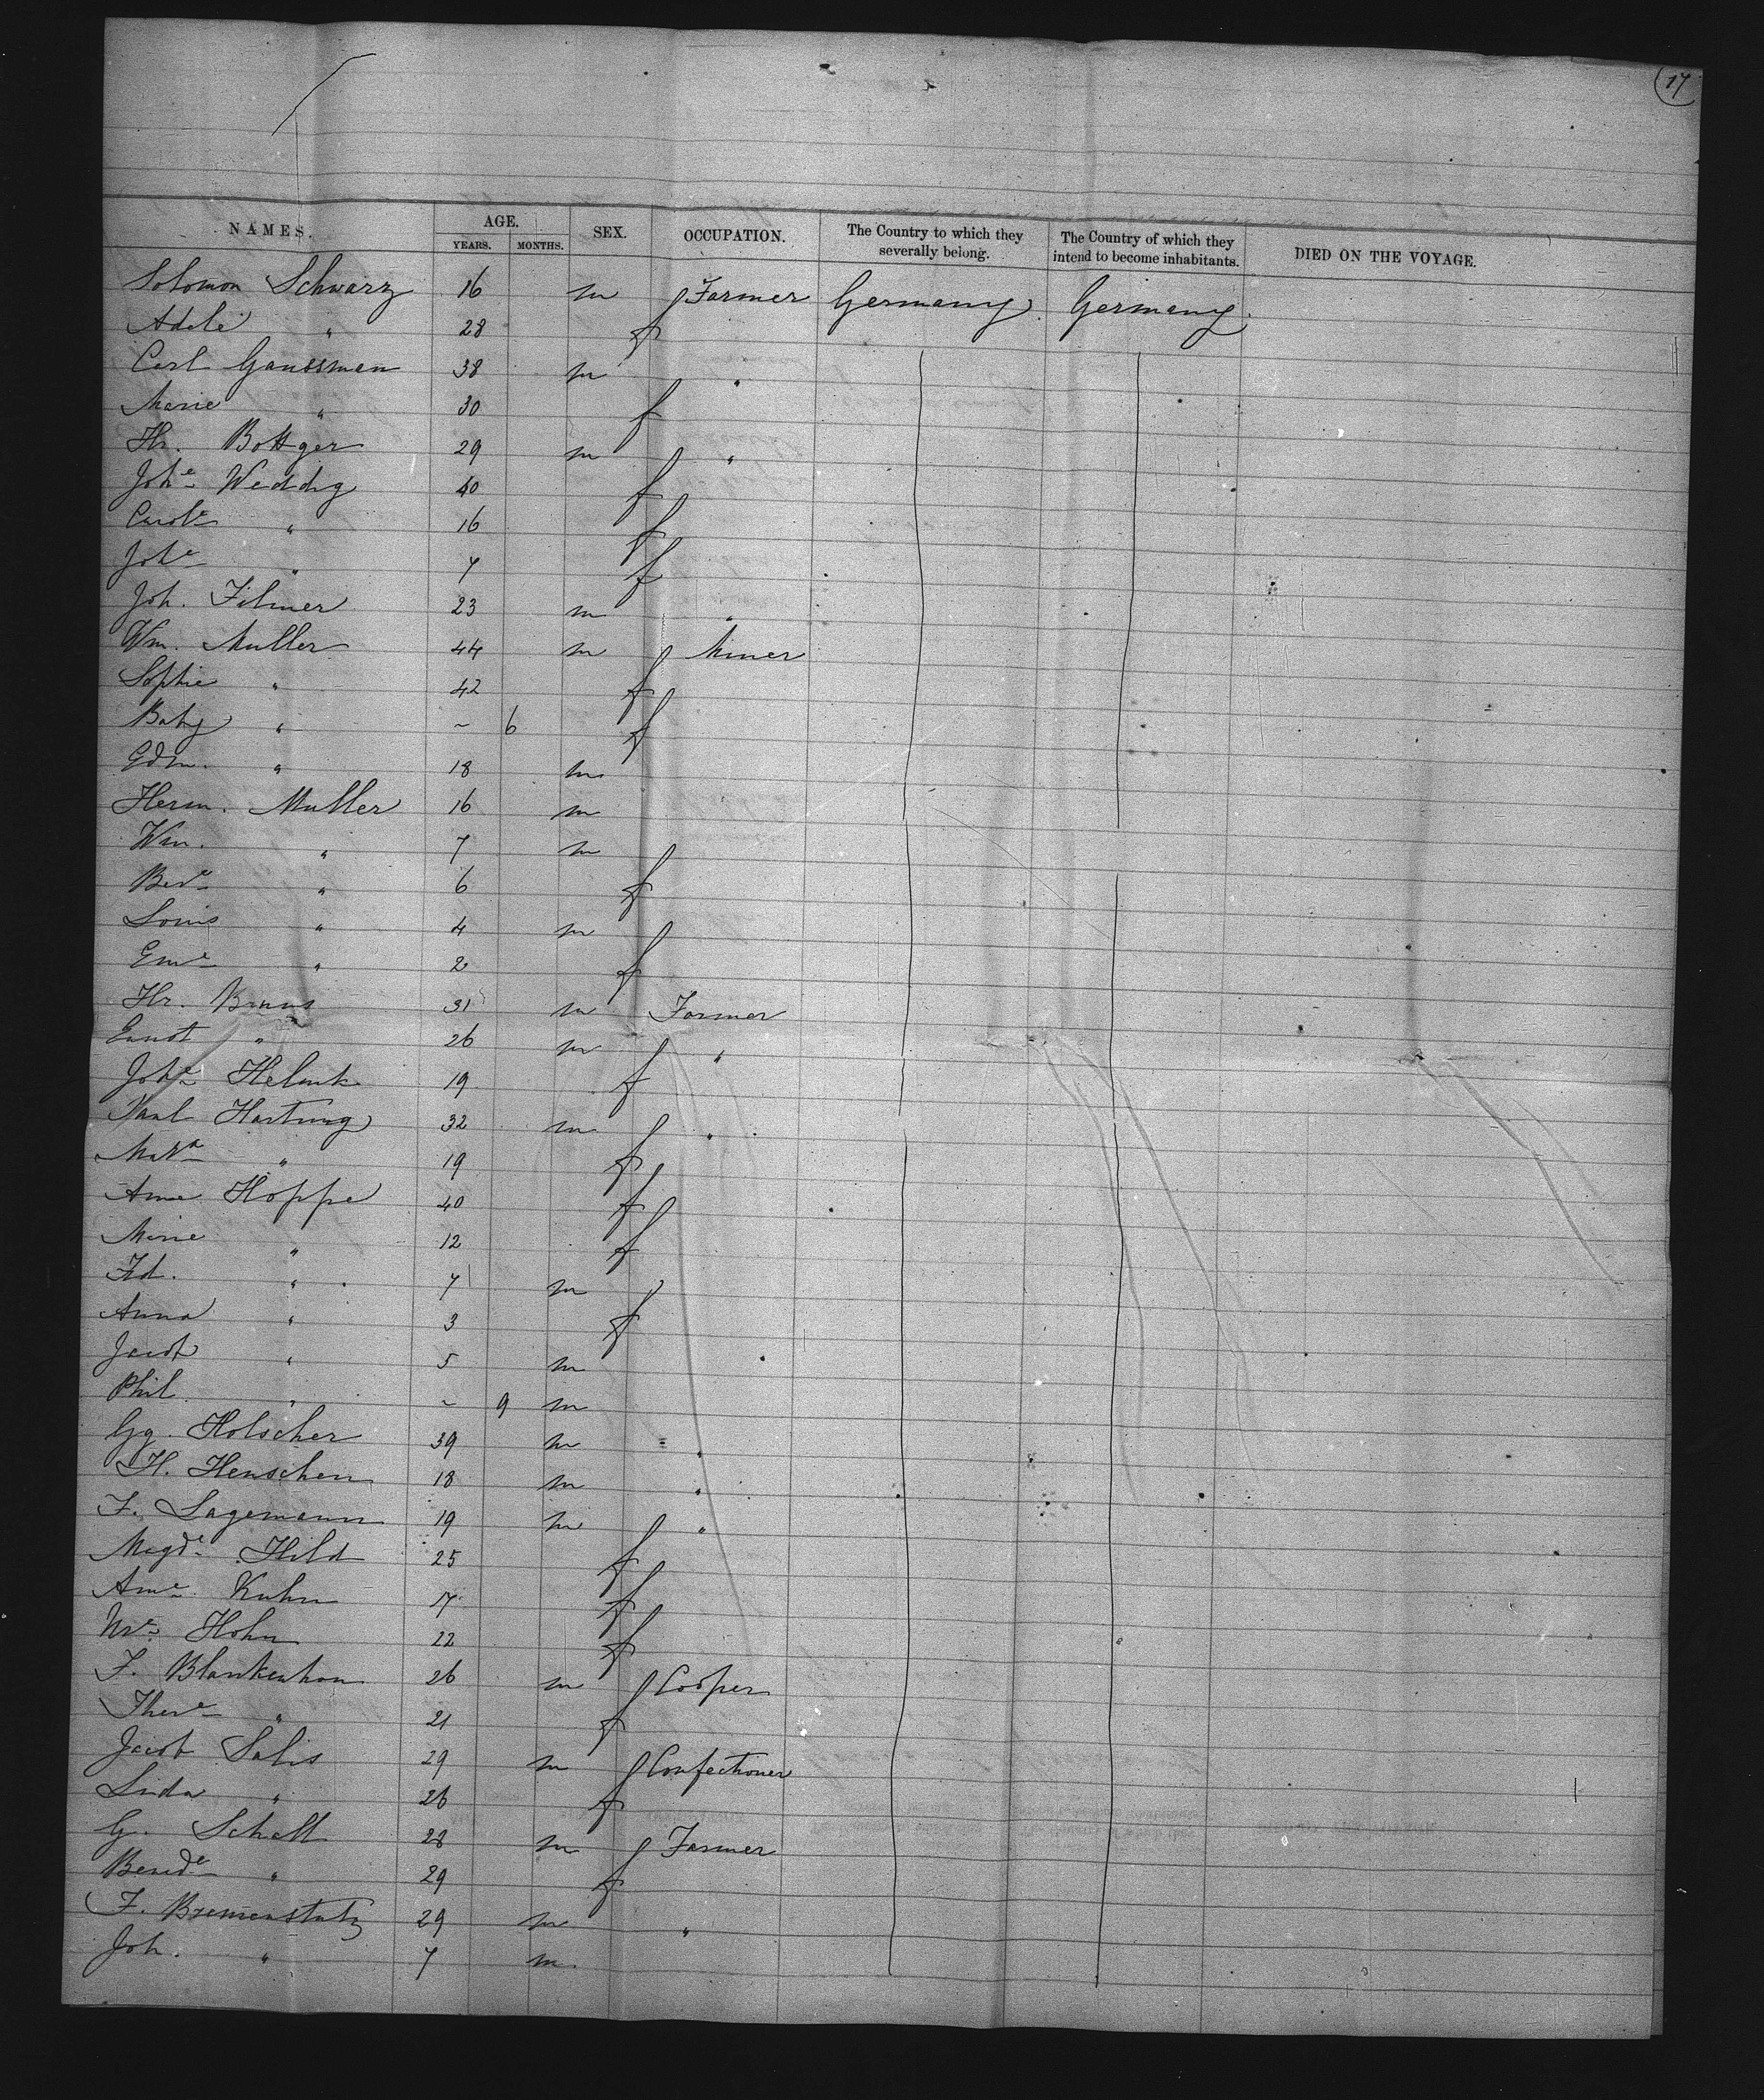 17
NAMES. AGE. SEX. OCCUPATION. The Country to which they severally belong. The Country of which they intend to become inhabitants. DIED ON THE VOYAGE.
YEARS. MONTHS.
Solomon Schwarz 16 m Farmer Germany Germany
Adele " 28 f
Carl Gaussman 38 m "
Marie " 30 f
Hr. Bottger 29 m "
Johe Weddig 40 f
Carole " 16 f
Johe " 7 f
Joh. Filmer 23 m "
Wm. Muller 44 m Miner
Sophie " 42 f
Baby " ~ 6 f
Edm. " 18 m
Herm. Muller 16 m
Wm. " 7 m
" 6 f
Louis " 4 m
Eme " 2 f
Hr. Bruns 31 m Farmer
Ernst " 26 m "
Johe Helmk 19 f
Paul Hartung 32 m "
" 19 f
Anna Hoppe 40 f
Marie " 12 f
Fd. " 7 m
Anna " 3 f
Jacob " 5 m
Phil " ~ 9 m
Gg. Holscher 39 m "
H. Henschen 18 m "
F. Lagemann 19 m "
Magde Hild 25 f
Ame Kuhn 17 f
Hohn 22 f
F. Blankenhorn 26 m Cooper
There " 21 f
Jacob Salis 29 m Confectioner
Lida " 26 f
G. Schall 28 m Farmer
Bende " 29 f
F. Bremenstutz 29 m "
Joh. " 7 m